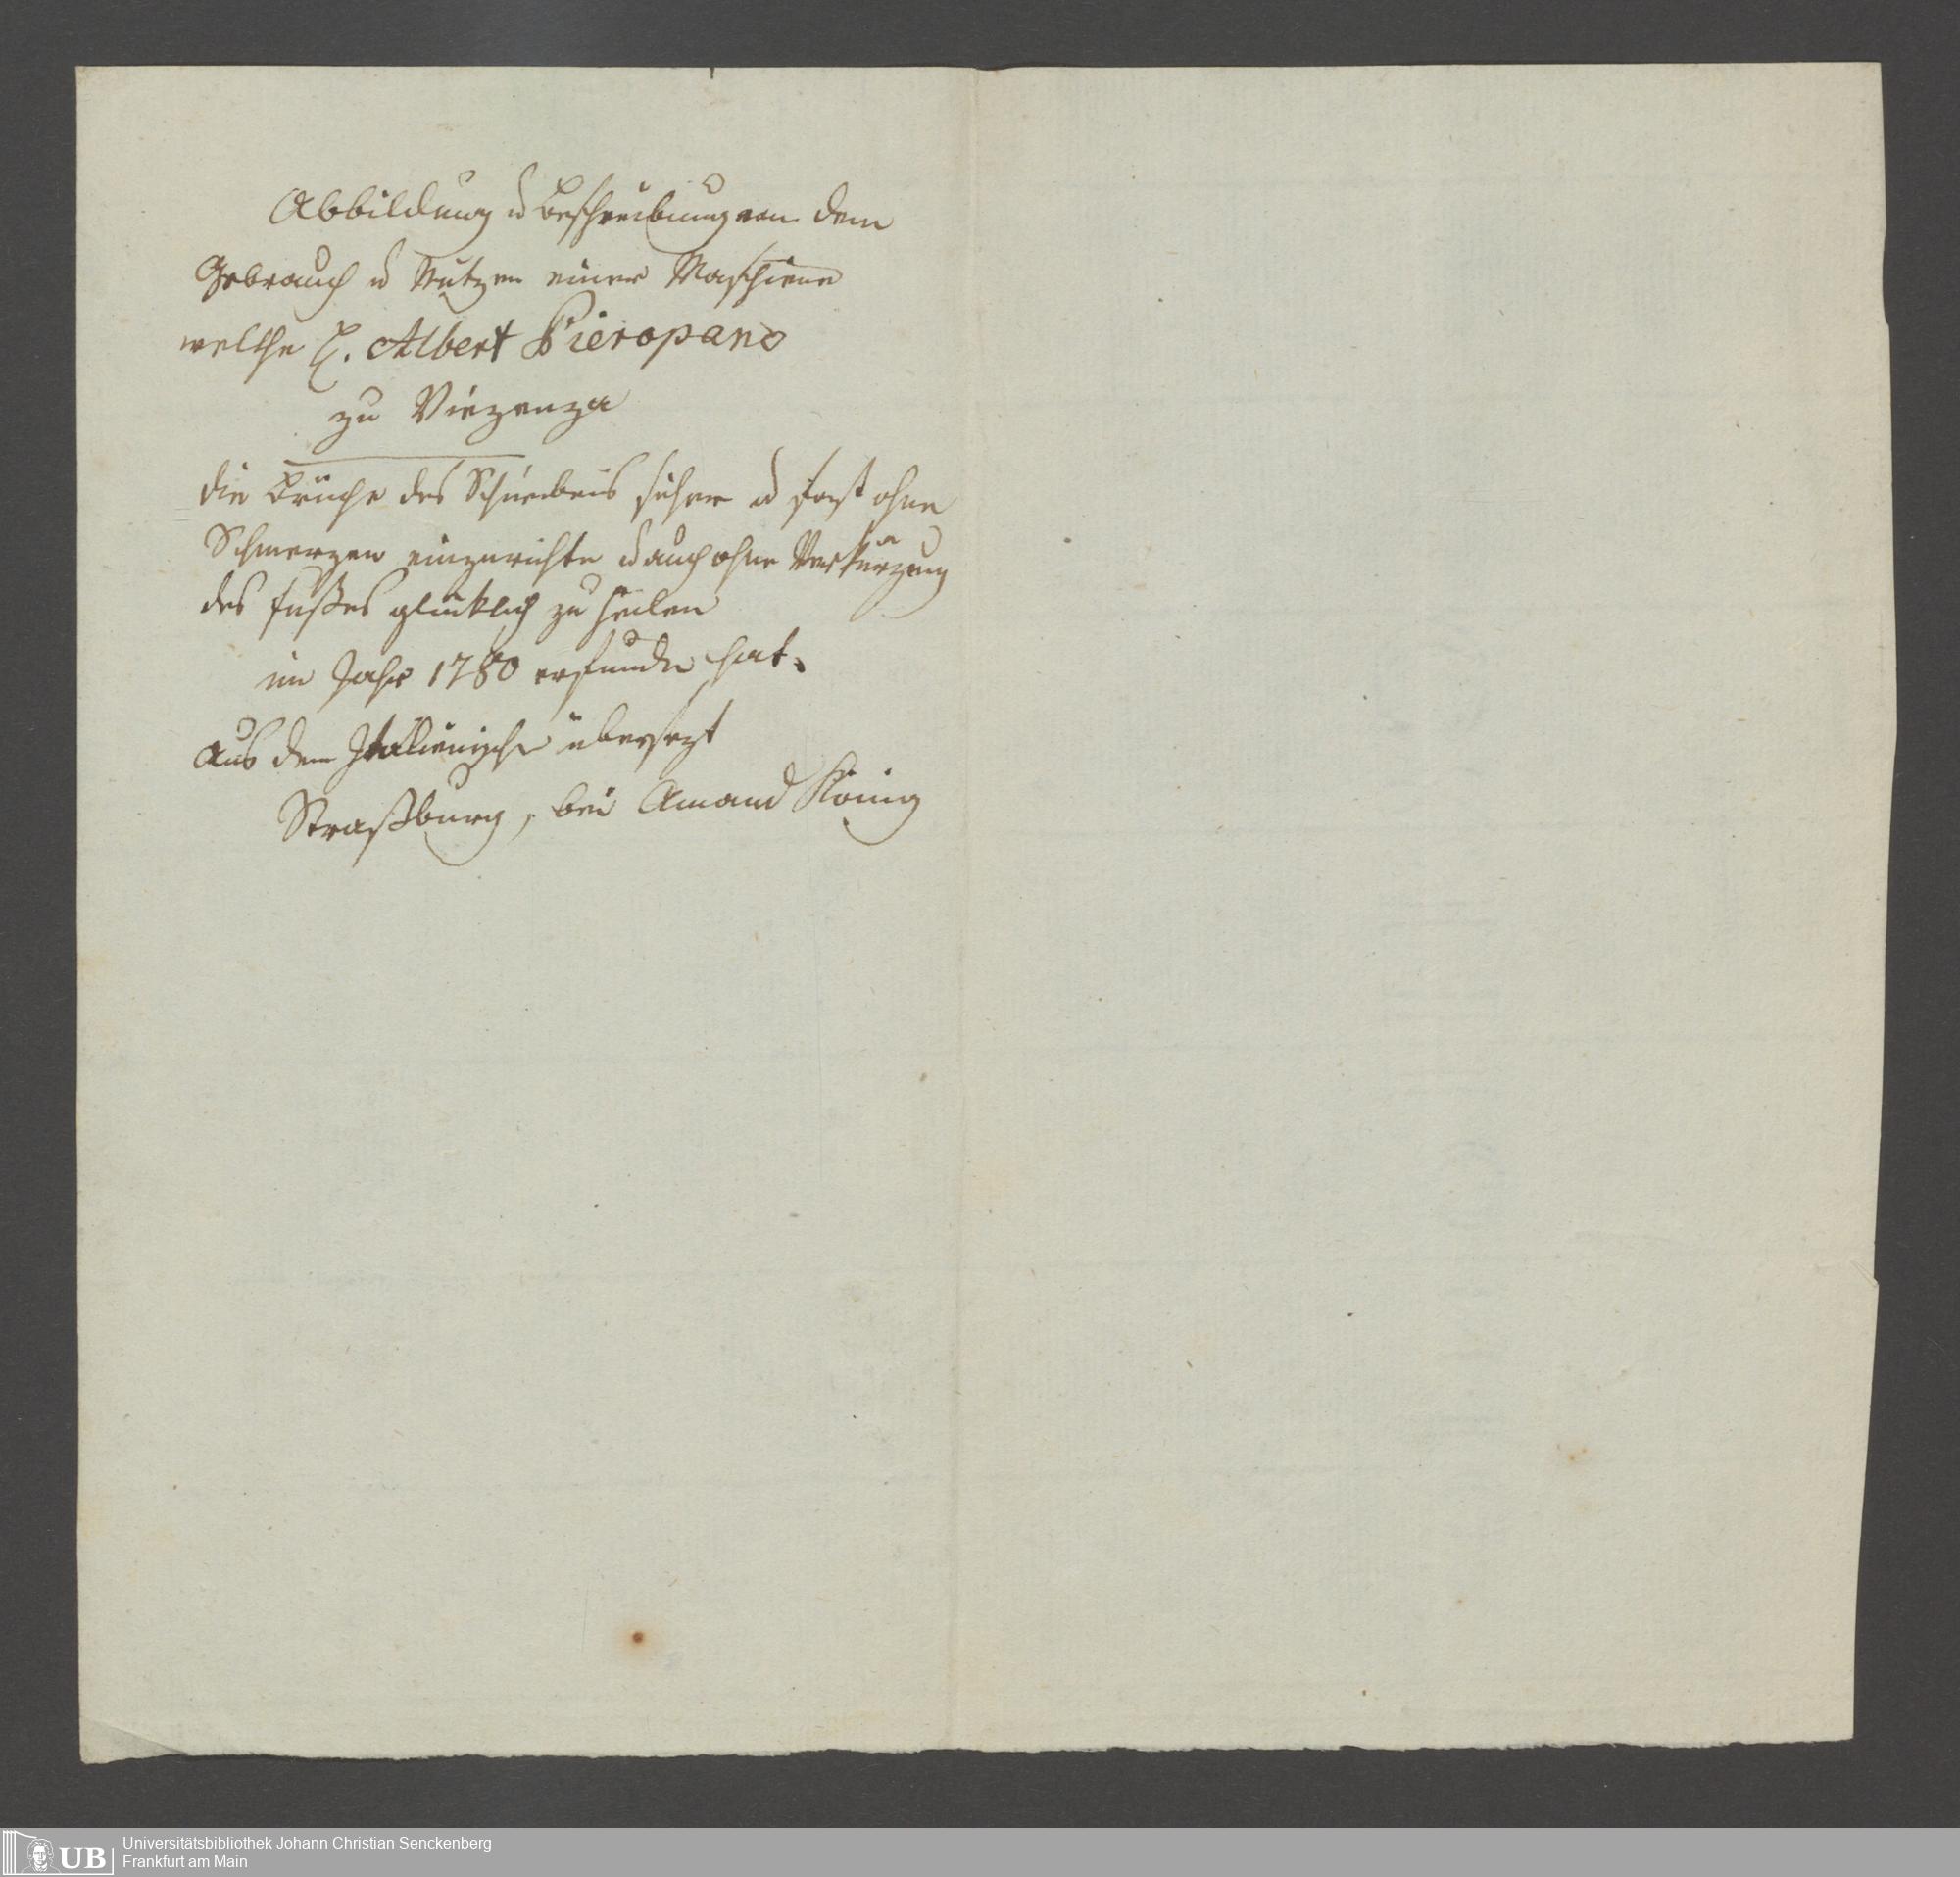 Abbildung u Beschreibung von dem
Gebrauch u Nutzen einer Maschiene
welche H. Albert Pieropano
zu Viezenza
die Brüche des Schienbeins sicher u fast ohne
Schmerzen einzurichte u auch ohne Verkürzung
des Fußes glüklich zu heilen
im Jahr 1780 erfunde hat.
Aus dem Italienische übersezt
Straßburg, bei Amand König
UB
Universitätsbibliothek Johann Christian Senckenberg
Frankfurt am Main